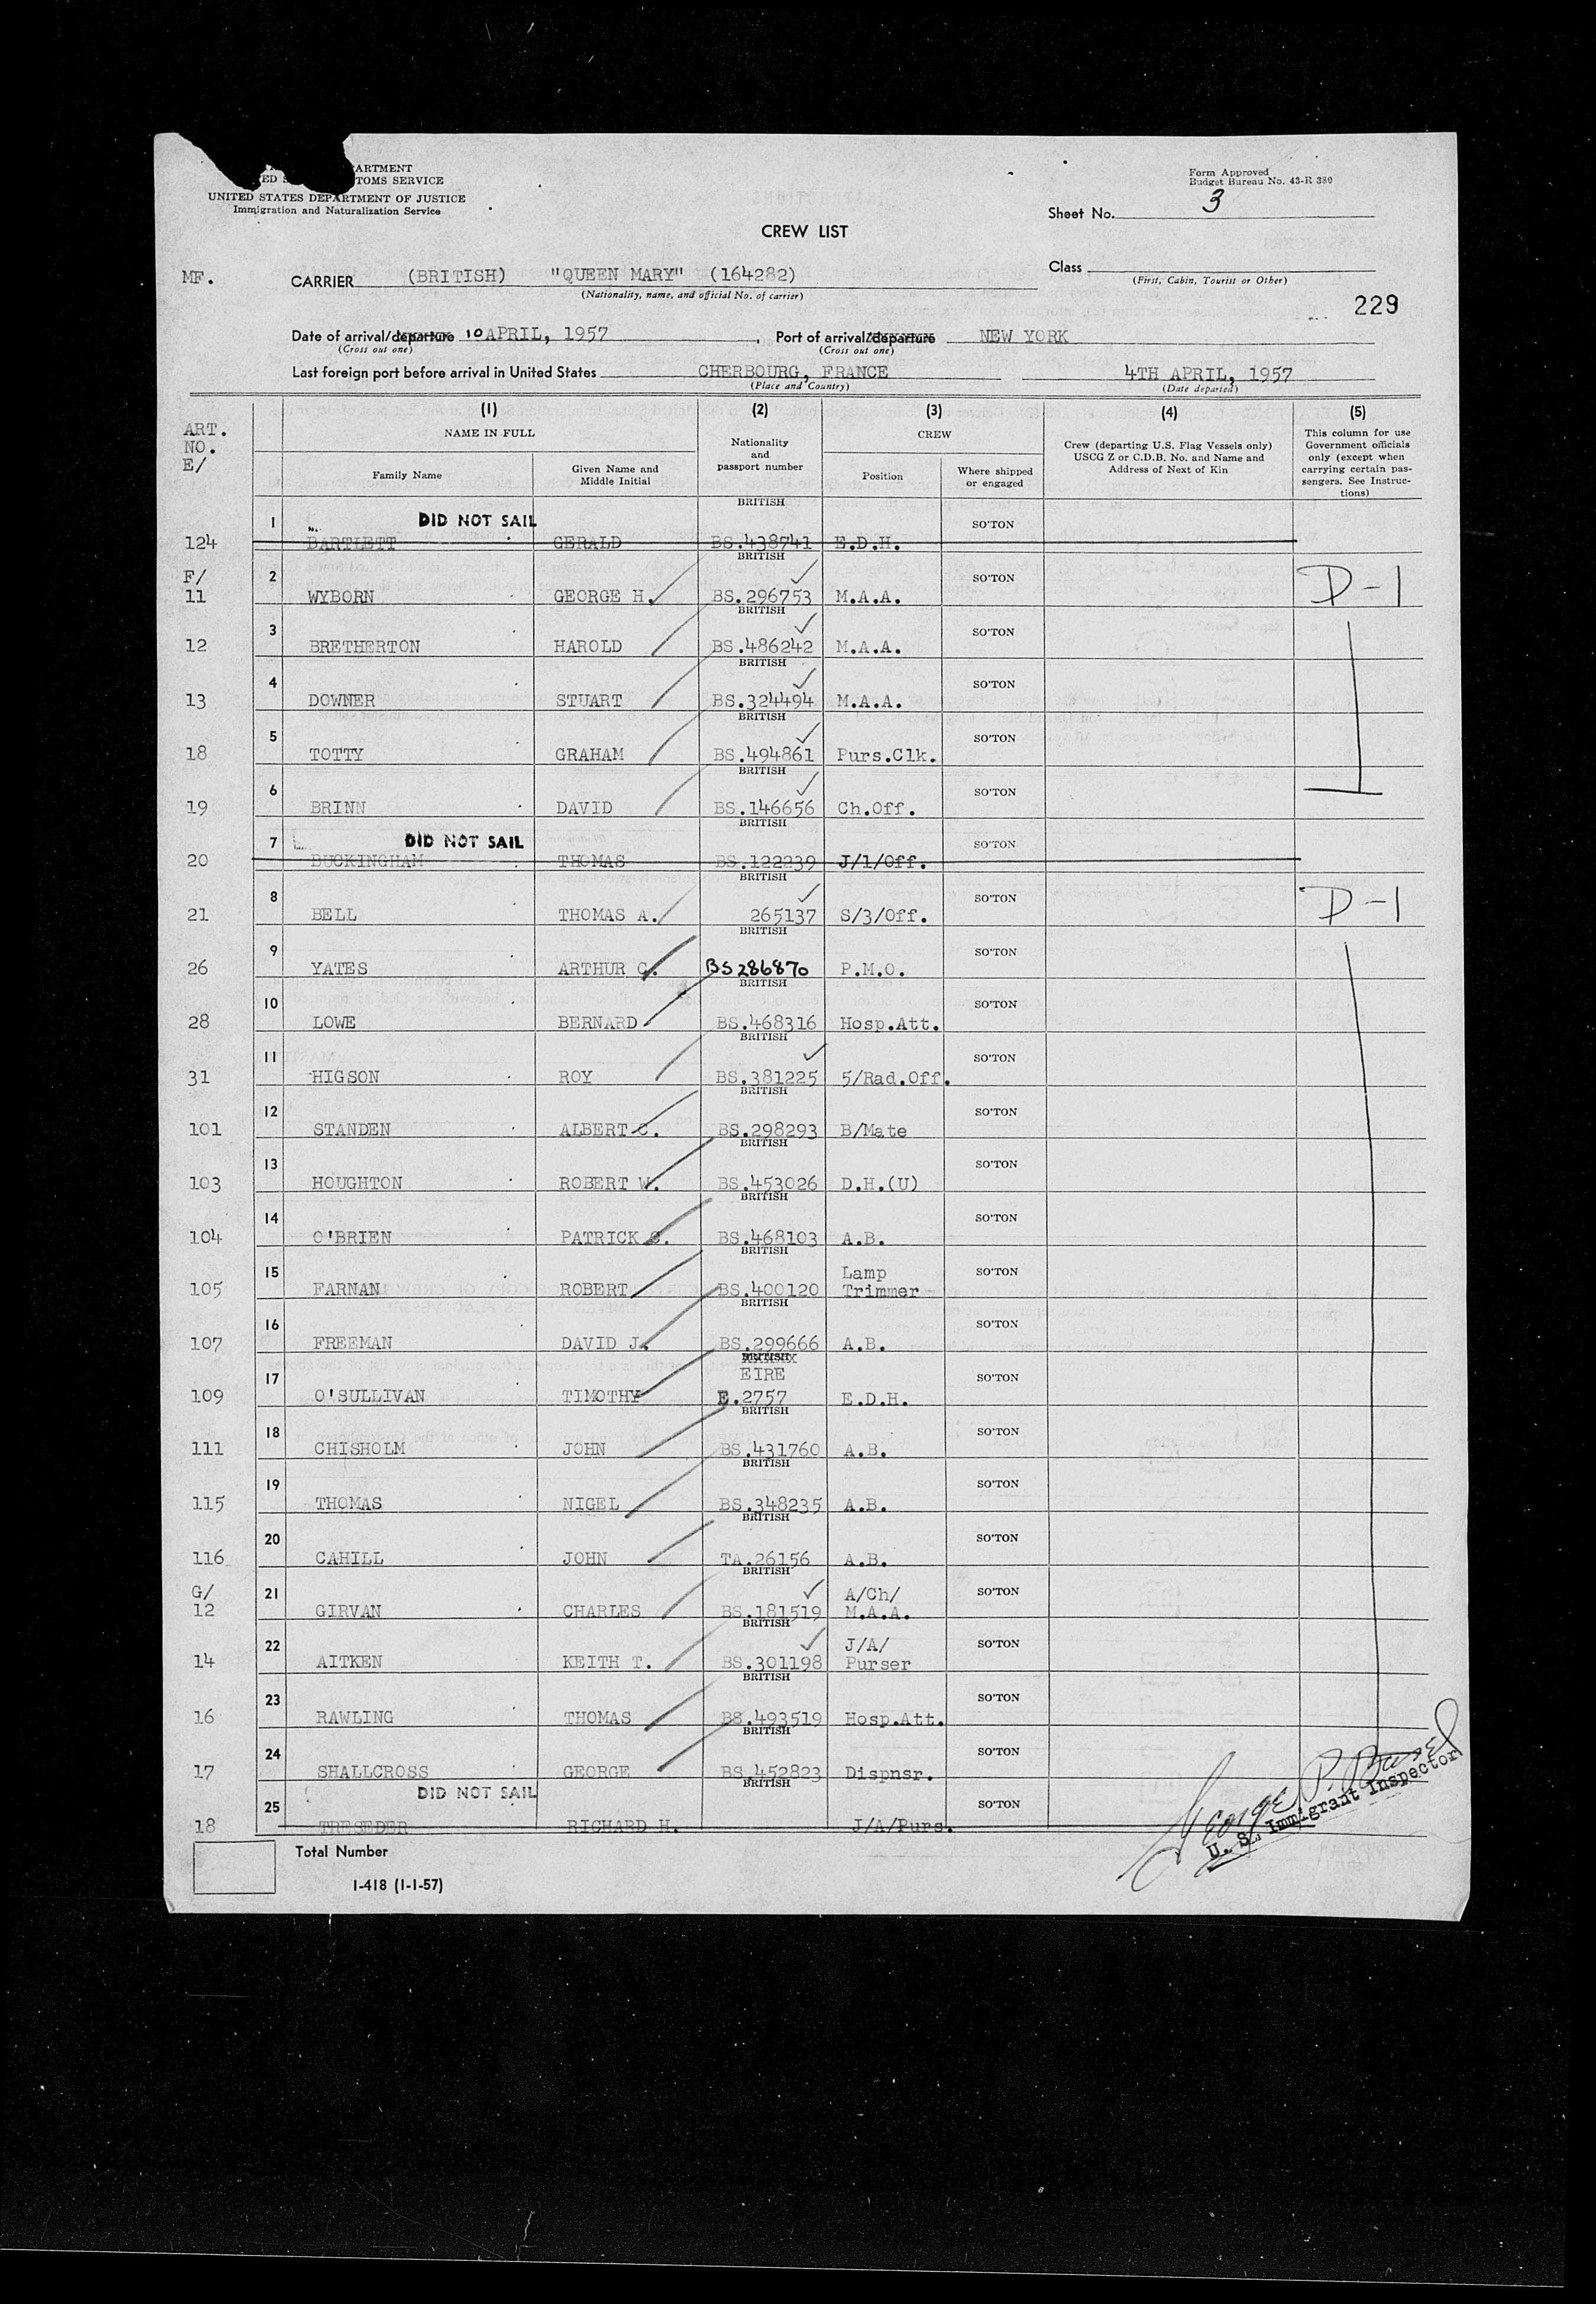 ARTMENT
ED S TOMS SERVICE
UNITED STATES DEPARTMENT OF JUSTICE
Immigration and Naturalization Service
Form Approved
Budget Bureau No. 43-R 380
Sheet No. 3
CREW LIST
MF.
CARRIER (BRITISH) "QUEEN MARY" (164282)
(Nationality, name, and official No. of carrier)
Class
(First, Cabin, Tourist or Other)
229
Date of arrival/departure 10 APRIL, 1957, Port of arrival/departure NEW YORK
(Cross out one) (Cross out one)
Last foreign port before arrival in United States CHERBOURG, FRANCE 4TH APRIL, 1957
(Place and Country) (Date departed)
ART. NO. E/
(1) (2) (3) (4) (5)
NAME IN FULL
Family Name
Given Name and Middle Initial
Nationality and passport number
CREW
Position
Where shipped or engaged
Crew (departing U.S. Flag Vessels only) USCG Z or C.D.B. No. and Name and Address of Next of Kin
This column for use Government officials only (except when carrying certain passengers. See Instructions)
DID NOT SAIL
124 1 BARTLETT GERALD BRITISH BS.438741 E.D.H. SO'TON
F/ 11 2 WYBORN GEORGE H. BRITISH BS.296753 M.A.A. SO'TON D-1
12 3 BRETHERTON HAROLD BRITISH BS.486242 M.A.A. SO'TON
13 4 DOWNER STUART BRITISH BS.324494 M.A.A. SO'TON
18 5 TOTTY GRAHAM BRITISH BS.494861 Purs.Clk. SO'TON
19 6 BRINN DAVID BRITISH BS.146656 Ch.Off. SO'TON
DID NOT SAIL
20 7 BUCKINGHAM THOMAS BRITISH BS.122239 J/1/Off. SO'TON
21 8 BELL THOMAS A. BRITISH 265137 S/3/Off. SO'TON D-1
26 9 YATES ARTHUR C. BRITISH BS286870 P.M.O. SO'TON
28 10 LOWE BERNARD BRITISH BS.468316 Hosp.Att. SO'TON
31 11 HIGSON ROY BRITISH BS.381225 5/Rad.Off. SO'TON
101 12 STANDEN ALBERT C. BRITISH BS.298293 B/Mate SO'TON
103 13 HOUGHTON ROBERT W. BRITISH BS.453026 D.H.(U) SO'TON
104 14 O'BRIEN PATRICK BRITISH BS.468103 A.B. SO'TON
105 15 FARNAN ROBERT BRITISH BS.400120 Lamp Trimmer SO'TON
107 16 FREEMAN DAVID J. BRITISH BS.299666 A.B. SO'TON
109 17 O'SULLIVAN TIMOTHY BRITISH EIRE E.2757 E.D.H. SO'TON
111 18 CHISHOLM JOHN BRITISH BS.431760 A.B. SO'TON
115 19 THOMAS NIGEL BRITISH BS.348235 A.B. SO'TON
116 20 CAHILL JOHN BRITISH TA.26156 A.B. SO'TON
G/ 12 21 GIRVAN CHARLES BRITISH BS.181519 A/Ch/ M.A.A. SO'TON
14 22 AITKEN KEITH T. BRITISH BS.301198 J/A/ Purser SO'TON
16 23 RAWLING THOMAS BRITISH BS.493519 Hosp.Att. SO'TON
17 24 SHALLCROSS GEORGE BRITISH BS.452823 Dispnsr. SO'TON
DID NOT SAIL
18 25 TRESEDER RICHARD H. BRITISH J/A/Purs. SO'TON
George P.
U. S. Immigrant Inspector
Total Number
I-418 (1-1-57)